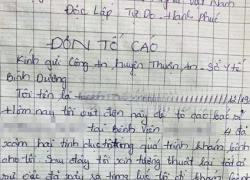 Việt Nam
Độc Lập Tự Do Hạnh Phúc
ĐƠN TỐ CÁO
Kính gửi Công an huyện Thuận An - Sở Y tế
Bình Dương
Tôi tên là 12/19
Hôm nay tôi viết đơn này để tố cáo bác sĩ
tại Bệnh Viện 4 đã
xâm hại tình dục tôi trong quá trình khám bệnh
cho tôi. Sau đây tôi xin tường thuật lại tất cả
sự việc đã xảy ra từng lúc tôi đi khám bệnh